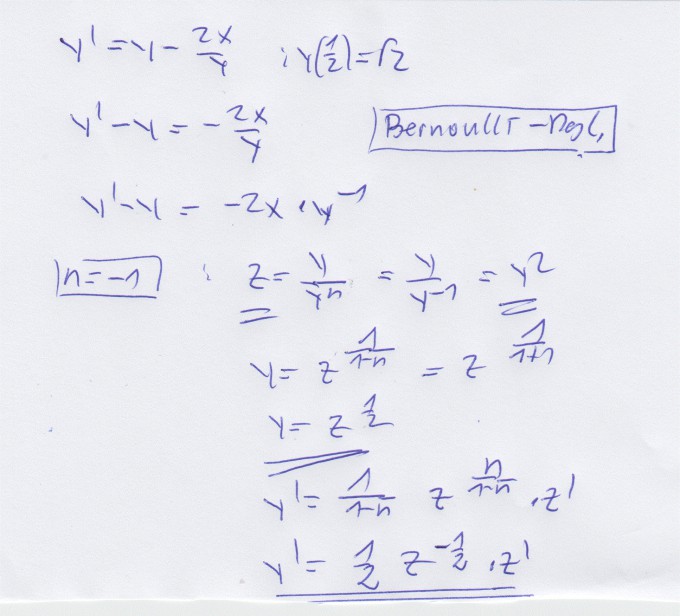 y' = y - 2x/y ; y(1/2) = √2
y' - y = - 2x/y Bernoulli - Dgl.
y' - y = -2x · y^-1
n = -1 : z = y/y^n = y/y^-1 = y^2
y = z^(1/(1-n)) = z^(1/(1+1))
y = z^(1/2)
y' = 1/(1-n) z^(n/(1-n)) · z'
y' = 1/2 z^(-1/2) · z'